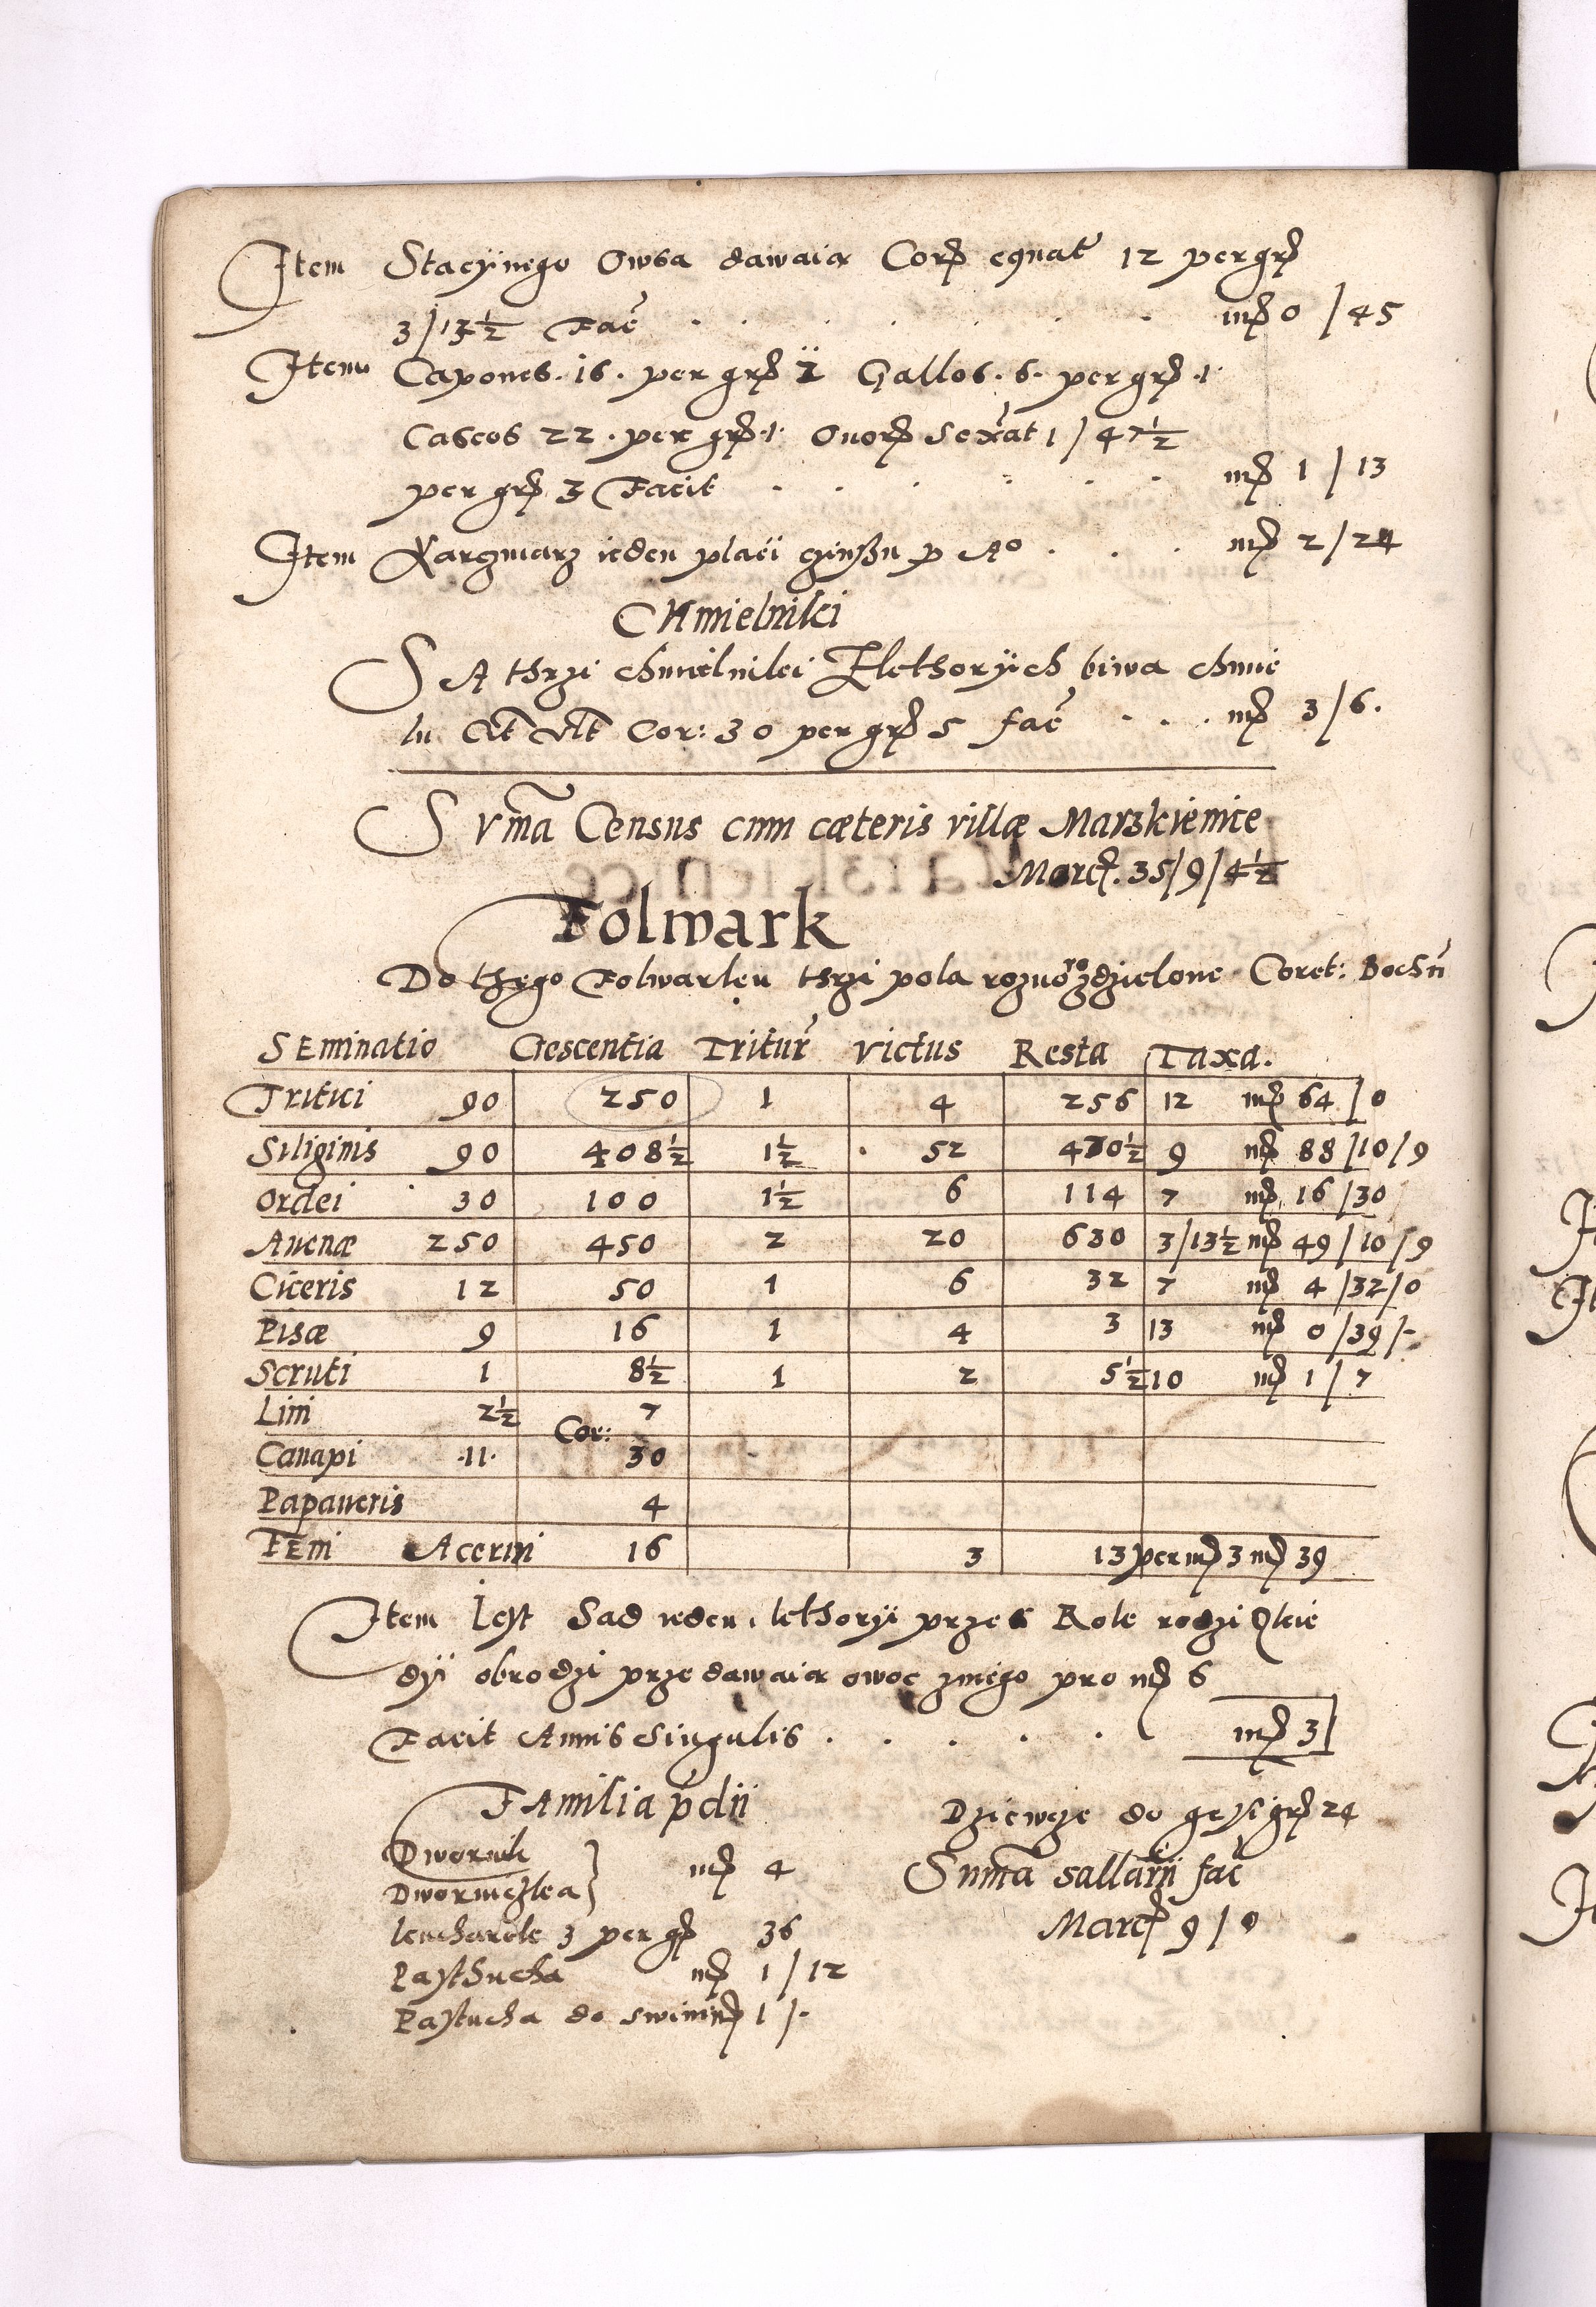 Item Stacyinego Owsa dawaia Cor: equat 12 per gr
3/13½ Fac . . . . . . . mr 0 /45
Item Capones . 16 . per gr 2 Gallos . 6 . per gr .1.
Caseos 22 . per gr .1. Ouor Sexat 1 / 47½
per gr 3 Facit . . . . . . mr 1 / 13
Item Karczmarz ieden placi czinssu p Ao . . . mr 2/24
CHmielniki
SA thrzi chmielniki Z kthorÿch biwa chmie
lu Cor: 30 per gr 5 fac . . . mr 3/6.
SVma Census cum cæteris villæ Marzkienice
Marc. 35/9/4½
Folwark
Do thego Folwarku thrzi pola rozno rozdzielone Coret: Bochn
SEminatio Crescentia Tritur Victus Resta Taxa.
Tritici 90 250 1 4 256 12 mr 64/0
Siliginis 90 408½ 1½ 52 470½ 9 mr 88/10/9
Ordei 30 100 1½ 6 114 7 mr 16/30
Auenæ 250 450 2 20 630 3/13½ mr 49/10/9
Ciceris 12 50 1 6 32 7 mr 4/32/0
Pisæ 9 16 1 4 3 13 mr 0/39/-
Scruti 1 8½ 1 2 5½ 10 mr 1/7
Lini 2½ 7
Cor:
Canapi .11. 30
Papaueris 4
FEni Acerui 16 3 13 per mr 3 mr 39
Item Iest Sad ieden, kthorÿ przes Role rodzi kie
dÿ obrodzi przedawaia owoc znie̹go pro mr 6
Facit Annis Singulis . . . . . mr 3
FAmilia pdii
Dwornik
Dworniczka } mr 4
kucharek 3 per gr 36
Pasthucha mr 1/12
Pastucha do swini mr 1/-
Dziewcze do gesi gr 24
Suma sallarii fac
Marc 9/0